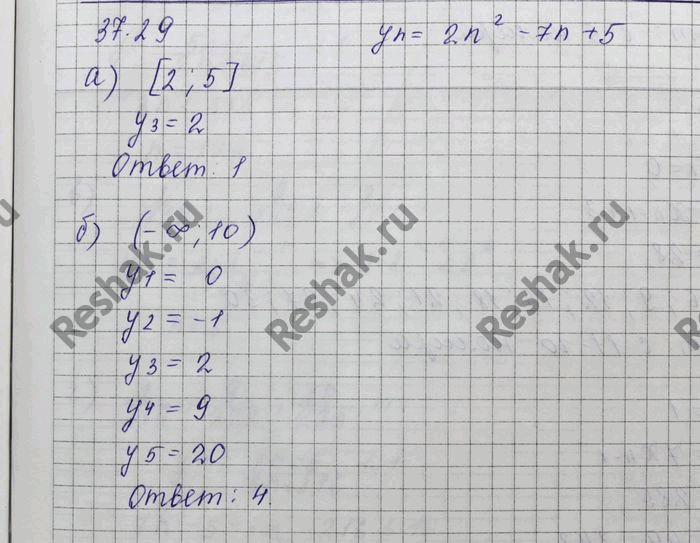 37.29 yn = 2n² - 7n + 5
а) [2; 5]
y3 = 2
Ответ: 1
б) (-∞; 10)
y1 = 0
y2 = -1
y3 = 2
y4 = 9
y5 = 20
Ответ: 4.
Reshak.ru
Reshak.ru